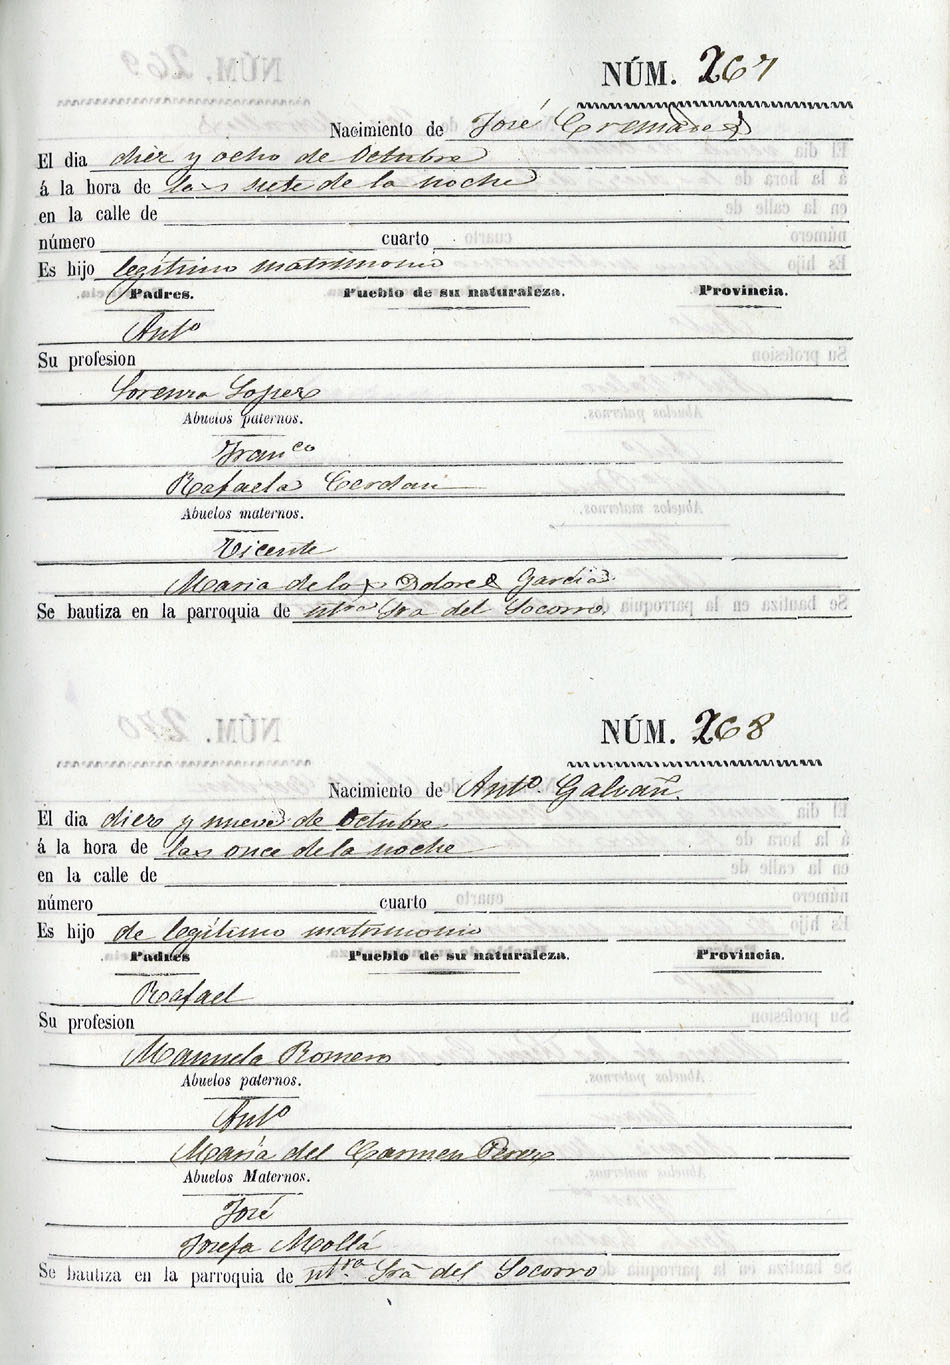 NÚM. 267
Nacimiento de José Cremades
El dia diez y ocho de Octubre
á la hora de las siete de la noche
en la calle de
número cuarto
Es hijo legítimo matrimonio
Padres. Pueblo de su naturaleza. Provincia.
Antº
Su profesion
Lorenza Lopez
Abuelos paternos.
Franco
Rafaela Cerdan
Abuelos maternos.
Vicente
Maria de los Dolores Garcia
Se bautiza en la parroquia de ntra Sra del Socorro.
NÚM. 268
Nacimiento de Antº Galvañ.
El dia diez y nueve de Octubre
á la hora de las once de la noche
en la calle de
número cuarto
Es hijo de legítimo matrimonio
Padres Pueblo de su naturaleza. Provincia.
Rafael
Su profesion
Manuela Romero
Abuelos paternos.
Antº
Maria del Carmen Perez
Abuelos Maternos.
José
Josefa Mollá
Se bautiza en la parroquia de ntra Sra del Socorro